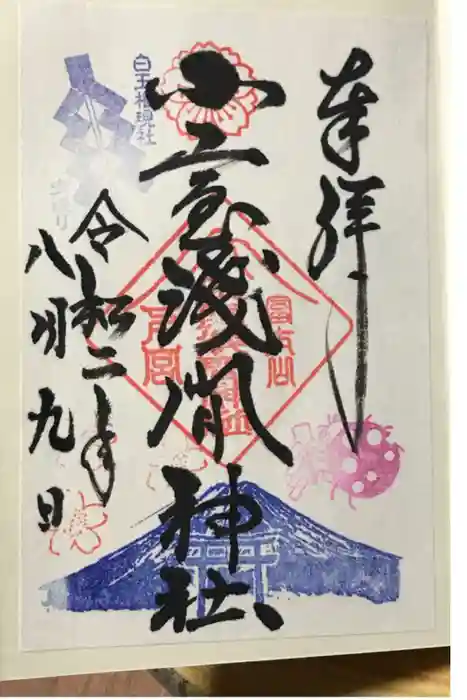 奉拝
小室浅間神社
令和二年
八月九日
白玉権現社
富士山